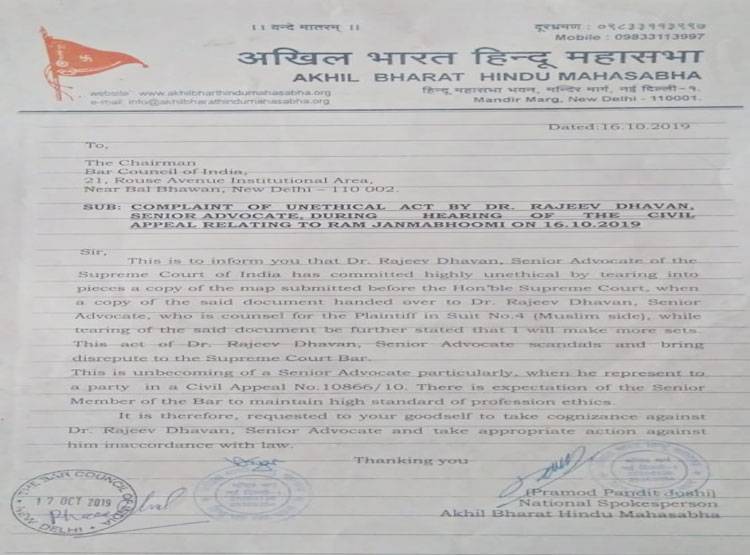 ।। वन्दे मातरम् ।।
दूरभाषण : ०९८३३११३९९७
Mobile : 09833113997
अखिल भारत हिन्दू महासभा
AKHIL BHARAT HINDU MAHASABHA
हिन्दू महासभा भवन, मन्दिर मार्ग, नई दिल्ली-१.
Mandir Marg, New Delhi - 110001.
website www.akhilbharthindumahasabha.org
e-mail info@akhilbharathindumahasabha.org
Dated:16.10.2019
To,
The Chairman
Bar Council of India,
21, Rouse Avenue Institutional Area,
Near Bal Bhawan, New Delhi – 110 002.
SUB: COMPLAINT OF UNETHICAL ACT BY DR. RAJEEV DHAVAN,
SENIOR ADVOCATE, DURING HEARING OF THE CIVIL
APPEAL RELATING TO RAM JANMABHOOMI ON 16.10.2019
Sir,
This is to inform you that Dr. Rajeev Dhavan, Senior Advocate of the
Supreme Court of India has committed highly unethical by tearing into
pieces a copy of the map submitted before the Hon'ble Supreme Court, when
a copy of the said document handed over to Dr. Rajeev Dhavan, Senior
Advocate, who is counsel for the Plaintiff in Suit No.4 (Muslim side), while
tearing of the said document be further stated that I will make more sets.
This act of Dr. Rajeev Dhavan, Senior Advocate scandals and bring
disrepute to the Supreme Court Bar.
This is unbecoming of a Senior Advocate particularly, when he represent to
a party in a Civil Appeal No.10866/10. There is expectation of the Senior
Member of the Bar to maintain high standard of profession ethics.
It is therefore, requested to your goodself to take cognizance against
Dr. Rajeev Dhavan, Senior Advocate and take appropriate action against
him inaccordance with law.
Thanking you
(Pramod Pandit Joshi)
National Spokesperson
Akhil Bharat Hindu Mahasabha
THE BAR COUNCIL OF INDIA
17 OCT 2019
NEW DELHI